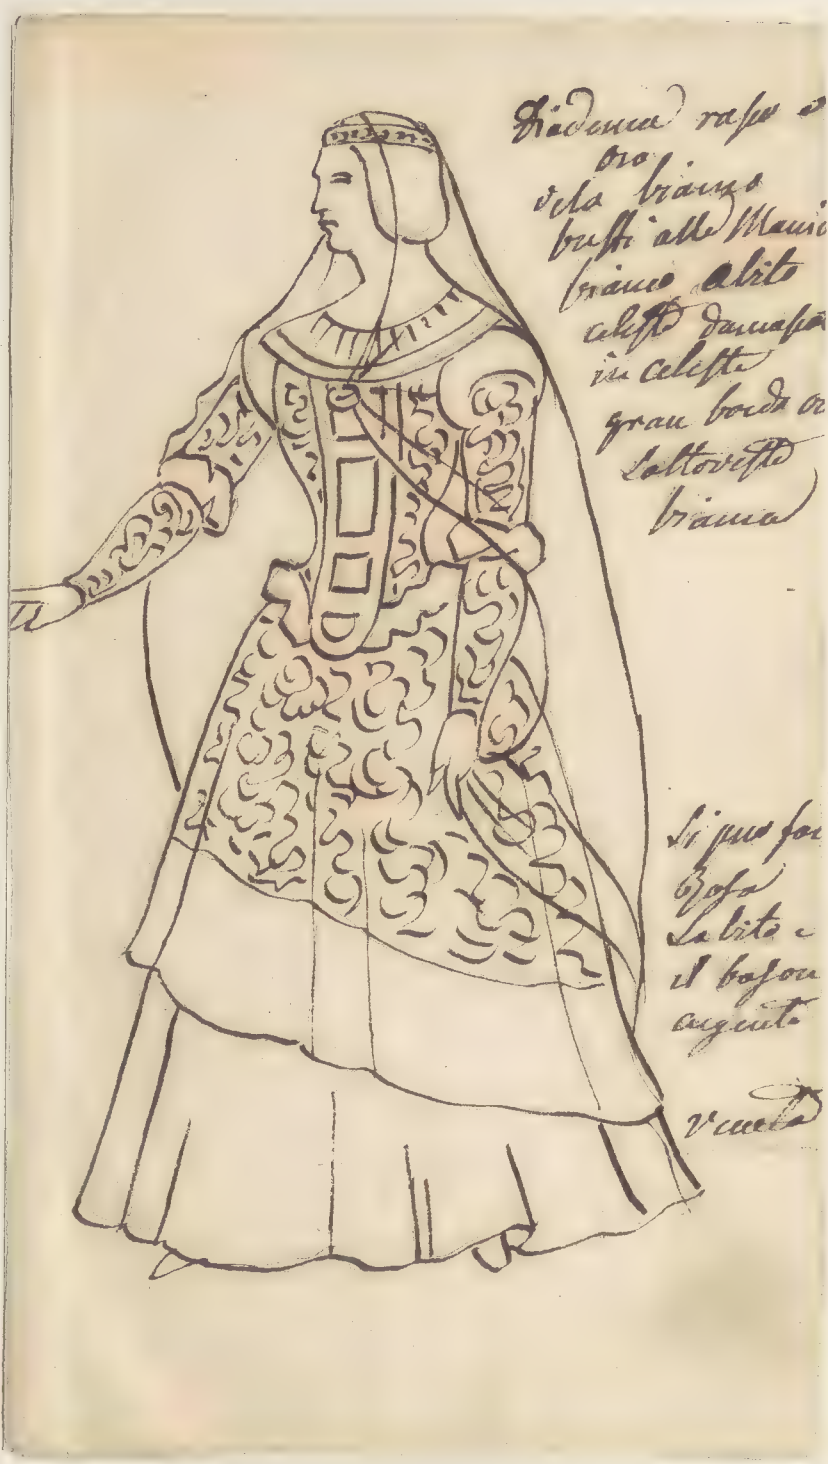 Diadema raso e
oro
velo bianco
buffi alle Mani
bianco Abito
celeste damasca
in celeste
gran bordo or
Sottoveste
bianca
Si puo far
Rosa
L'abito e
il
argento